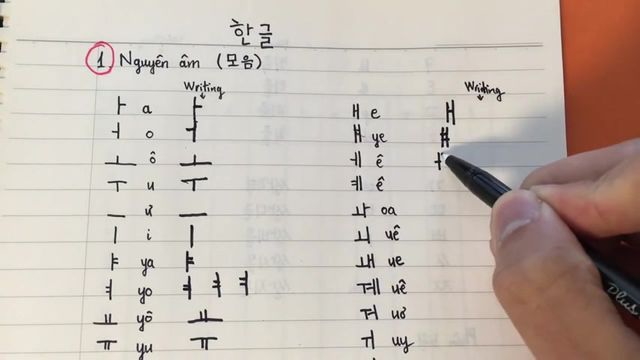 한글
1 Nguyên âm (모음)
Writing
ㅏ a ㅏ
ㅓ o ㅓ
ㅗ ô ㅗ
ㅜ u ㅜ
ㅡ ư ㅡ
ㅣ i ㅣ
ㅑ ya ㅑ
ㅕ yo ㅕ ㅕ ㅕ
ㅛ yô ㅛ
ㅠ yu ㅠ
Writing
ㅐ e ㅐ
ㅒ ye ㅒ
ㅔ ê
ㅖ ê
ㅘ oa
ㅚ uê
ㅙ ue
ㅞ uê
ㅝ uơ
ㅟ uy
Plus